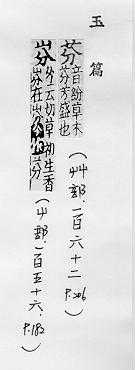 玉篇
芬 音紛草木
芬芳盛也
(艸部.一百六十二 P.206)
云切草初生香
(屮部.一百五十六.P.182)